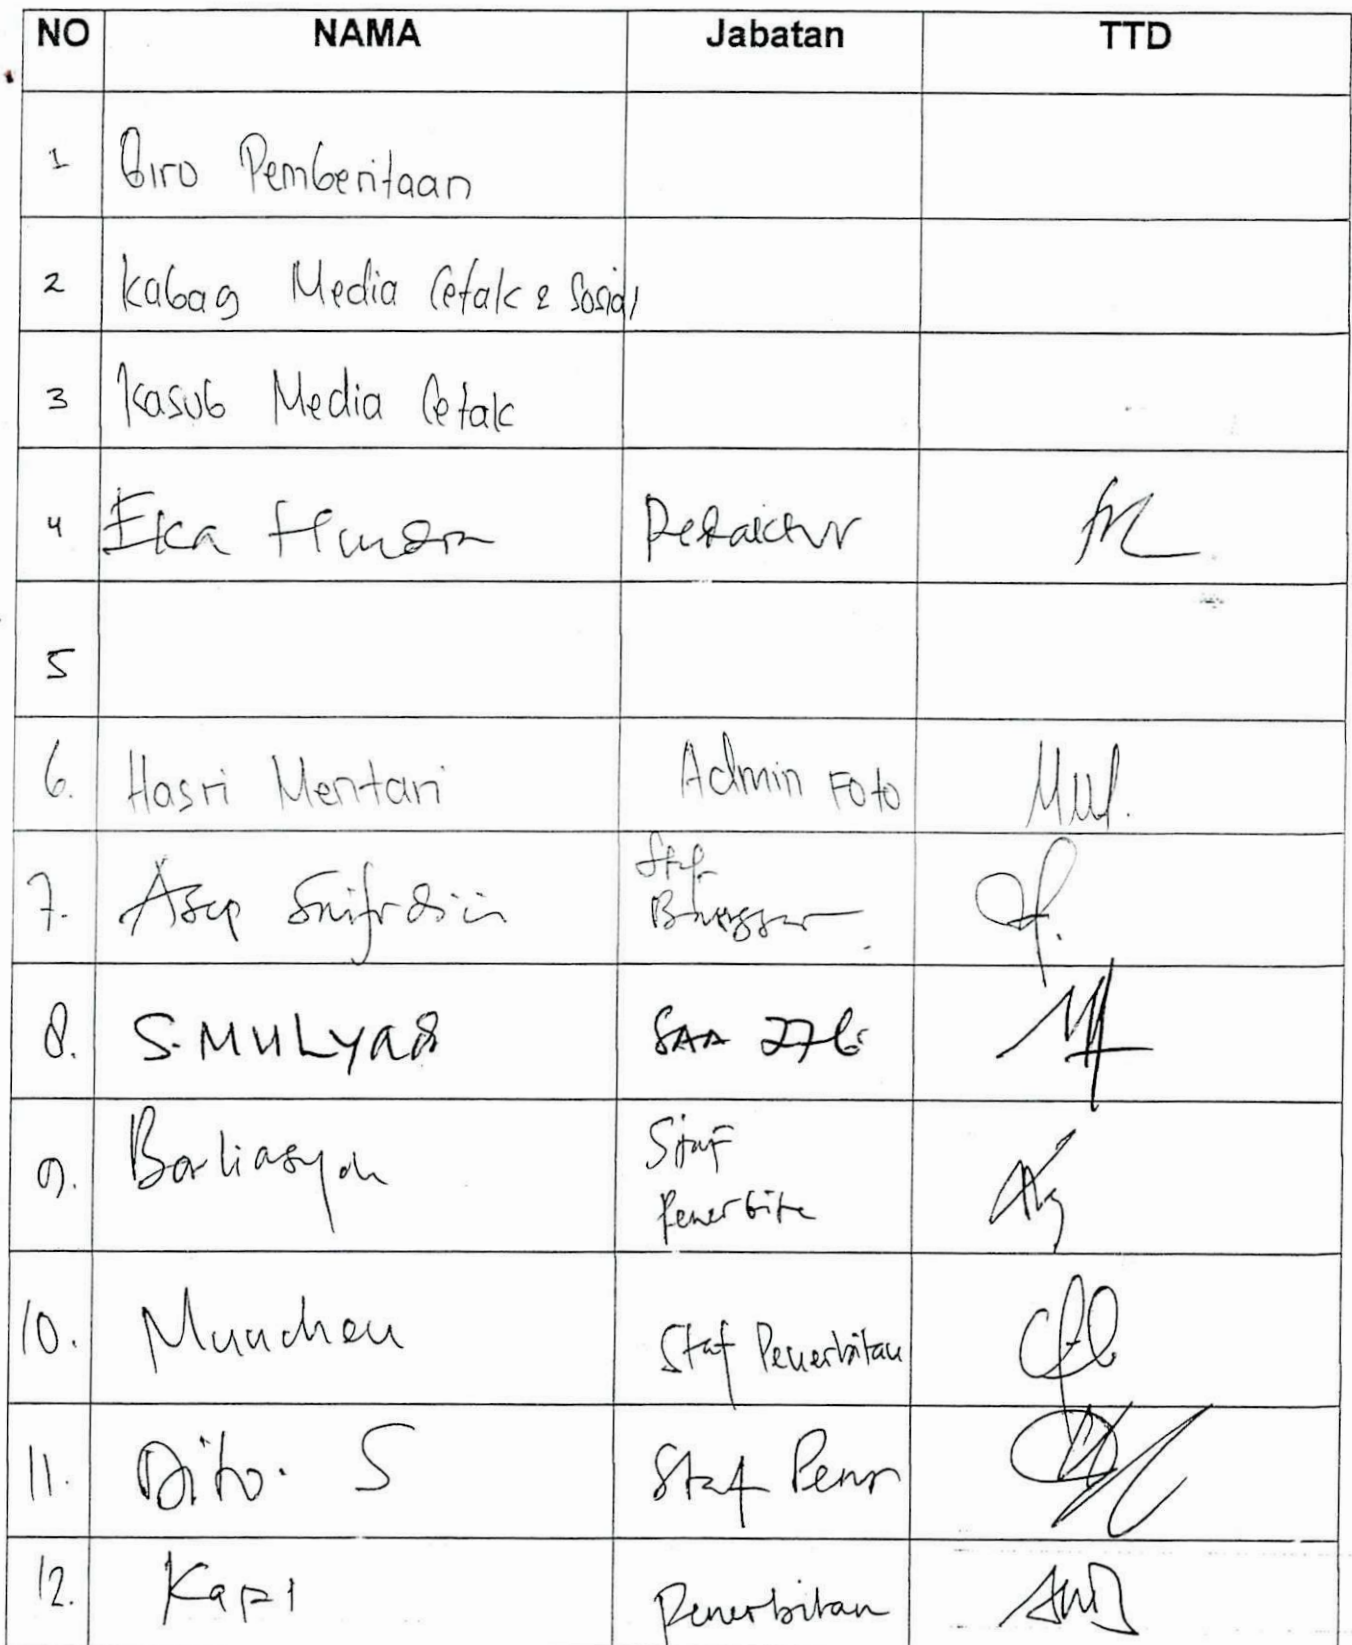 NO NAMA Jabatan TTD
1 Biro Pemberitaan
2 Kabag Media Cetak & Sosial
3 Kasub Media Cetak
4 Eka Redaktur
5
6. Hasri Mentari Admin Foto
7. Asep Staf
8. S. MULYADI
9. Barliasyah Staf
Penerbita
10. Staf Penerbitan
11. Dito. S Staf Pener
12. Kapi Penerbitan